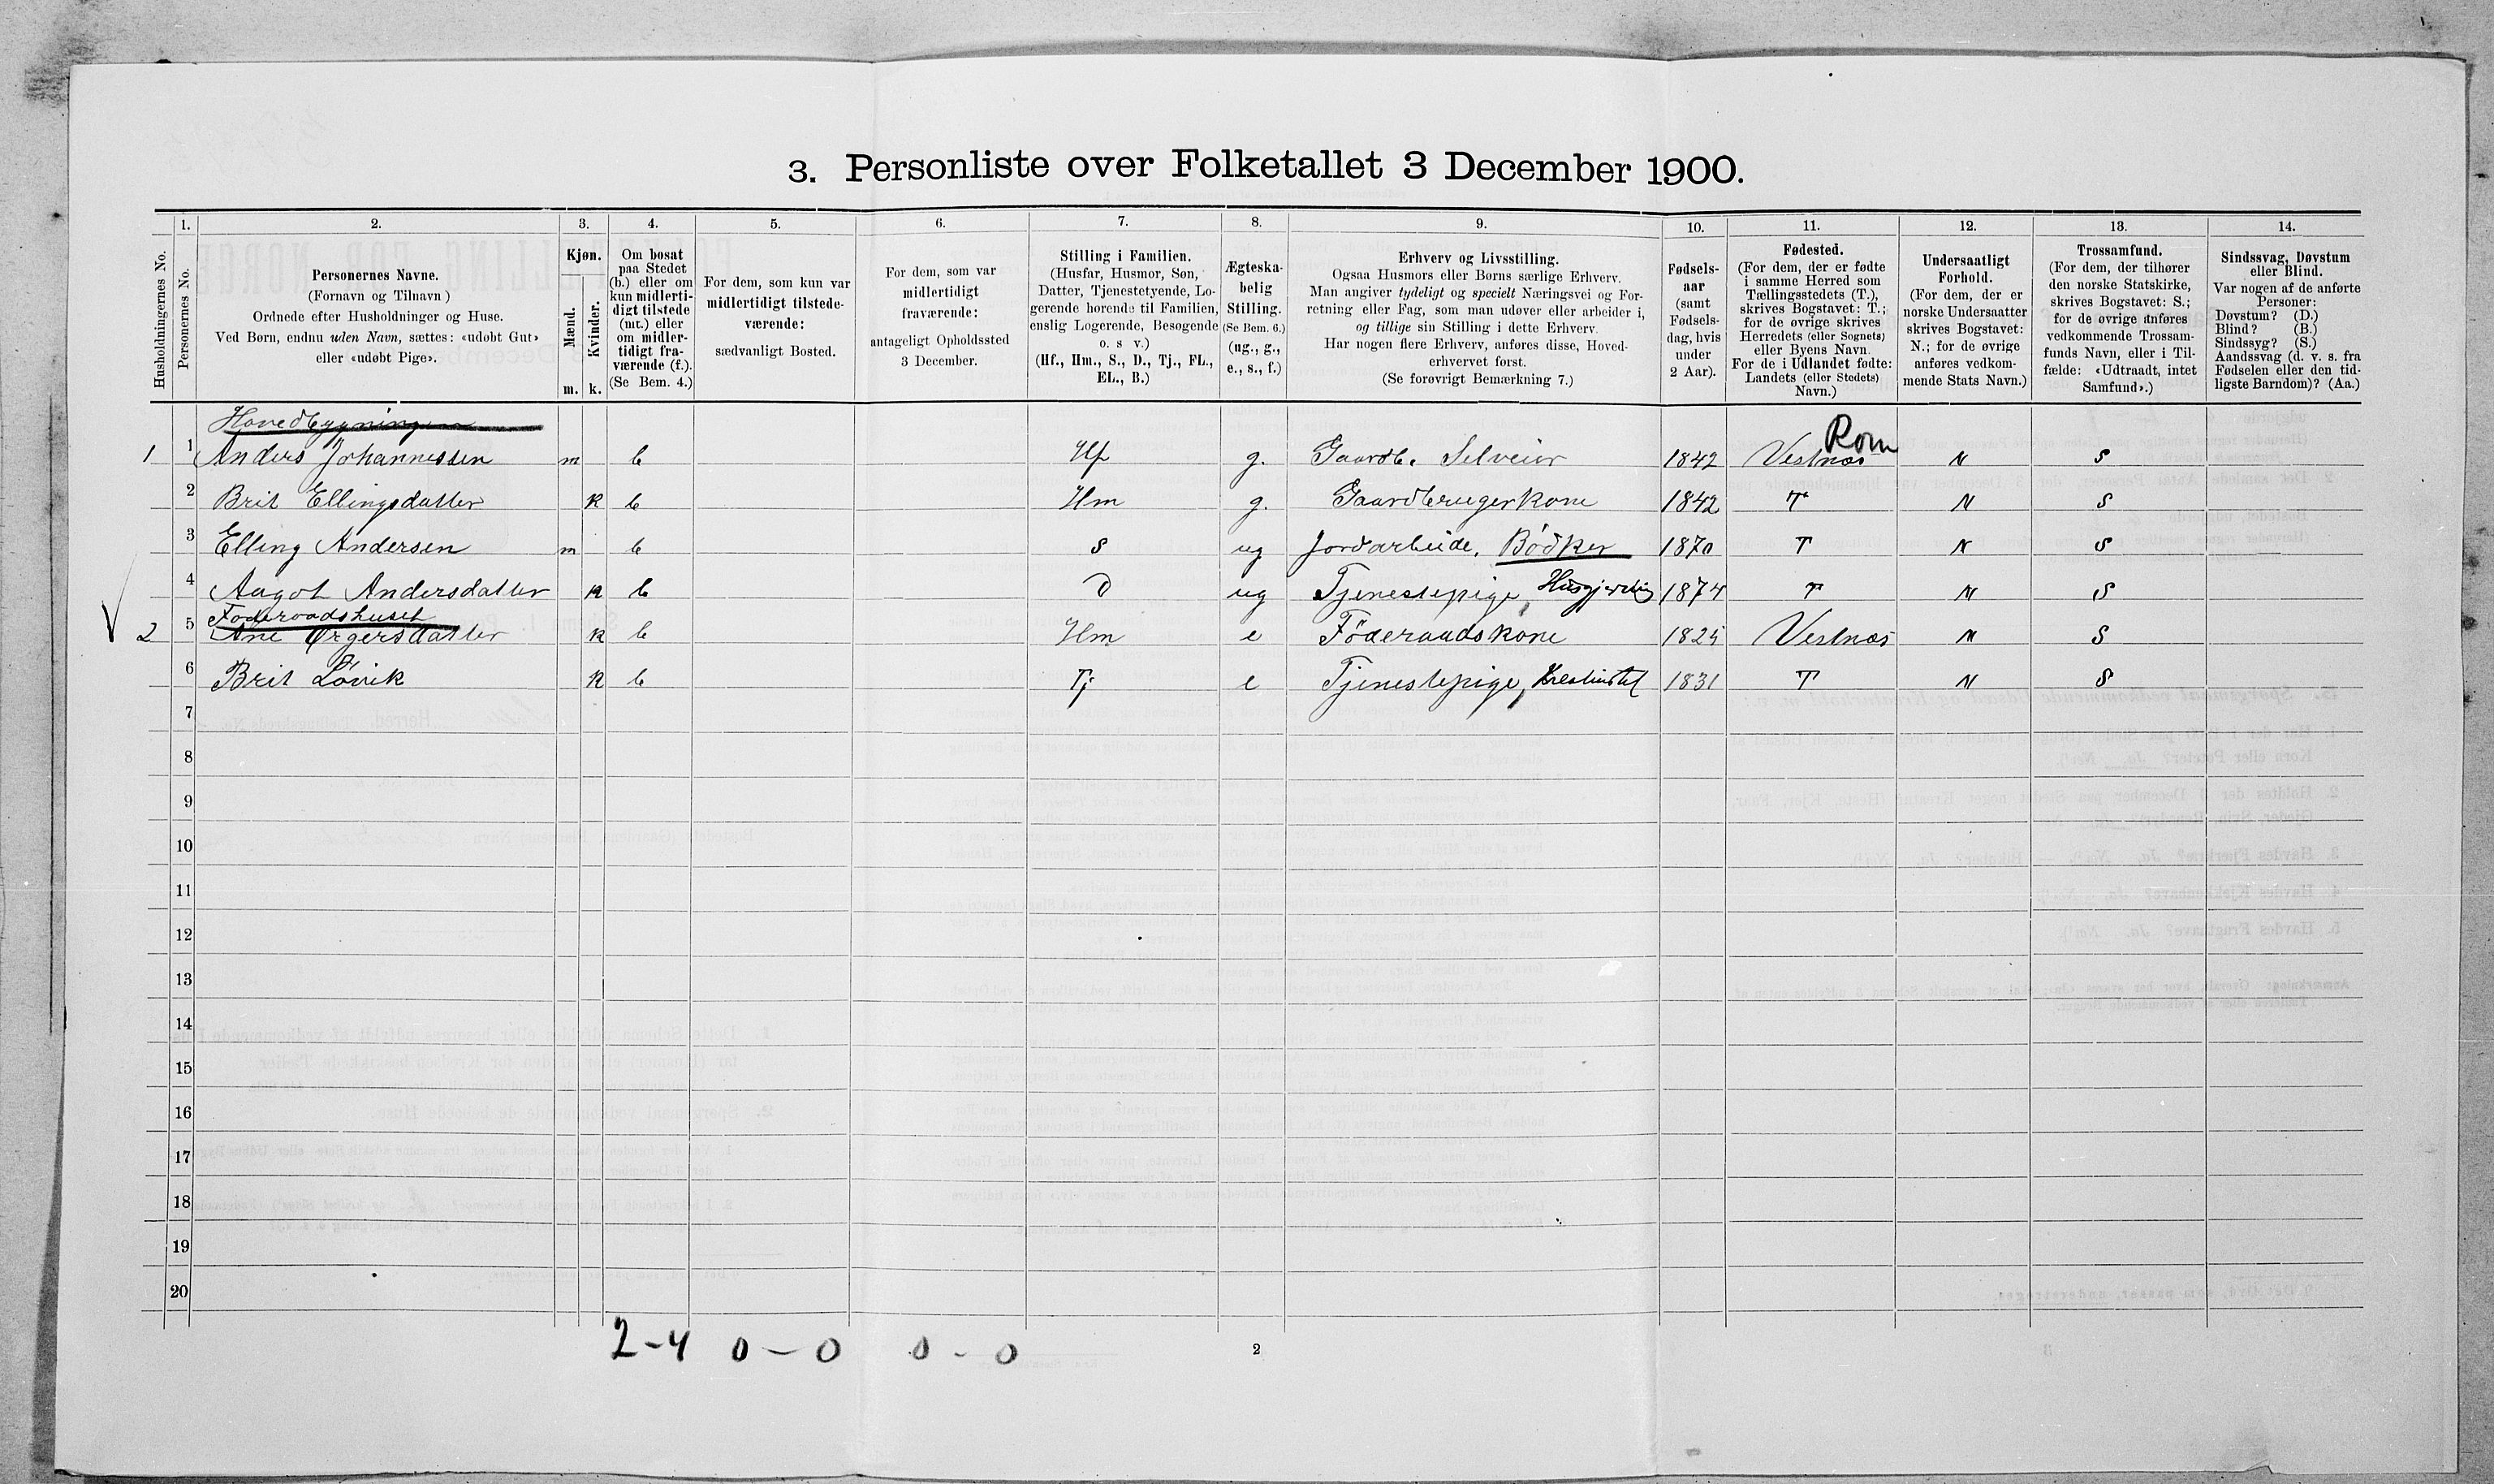 3. Personliste over Folketallet 3 December 1900.
Husholdningernes No.
1.
Personernes No.
2.
Personernes Navne.
(Fornavn og Tilnavn)
Ordnede efter Husholdninger og Huse.
Ved Børn, endnu uden Navn, sættes: «udøbt Gut»
eller «udøbt Pige».
3.
Kjøn.
Mænd.
Kvinder.
m. k.
4.
Om bosat
paa Stedet
(b.) eller om
kun midlerti-
digt tilstede
(mt.) eller
om midler-
tidigt fra-
værende (f.).
(Se Bem. 4.)
5.
For dem, som kun var
midlertidigt tilstede-
værende:
sædvanligt Bosted.
6.
For dem, som var
midlertidigt
fraværende:
antageligt Opholdssted
3 December.
7.
Stilling i Familien.
(Husfar, Husmor, Søn,
Datter, Tjenestetyende, Lo-
gerende hørende til Familien,
enslig Logerende, Besøgende
o. s v.)
(Hf., Hm., S., D., Tj., FL.,
EL., B.)
8.
Ægteska-
belig
Stilling.
(Se Bem. 6.)
(ug., g.,
e., s., f.)
9.
Erhverv og Livsstilling.
Ogsaa Husmors eller Børns særlige Erhverv.
Man angiver tydeligt og specielt Næringsvei og For-
retning eller Fag, som man udøver eller arbeider i,
og tillige sin Stilling i dette Erhverv.
Har nogen flere Erhverv, anføres disse, Hoved-
erhvervet først.
(Se forøvrigt Bemærkning 7.)
10.
Fødsels-
aar
(samt
Fødsels-
dag, hvis
under
2 Aar).
11.
Fødested.
(For dem, der er fødte
i samme Herred som
Tællingsstedets (T.),
skrives Bogstavet: T.;
for de øvrige skrives
Herredets (eller Sognets)
eller Byens Navn.
For de i Udlandet fødte:
Landets (eller Stedets)
Navn.)
12.
Undersaatligt
Forhold.
(For dem, der er
norske Undersaatter
skrives Bogstavet:
N.; for de øvrige
anføres vedkom-
mende Stats Navn.)
13.
Trossamfund.
(For dem, der tilhører
den norske Statskirke,
skrives Bogstavet: S.;
for de øvrige anføres
vedkommende Trossam-
funds Navn, eller i Til-
fælde: «Udtraadt, intet
Samfund».)
14.
Sindssvag, Døvstum
eller Blind.
Var nogen af de anførte
Personer:
Døvstum? (D.)
Blind? (B.)
Sindssyg? (S.)
Aandssvag (d. v. s. fra
Fødselen eller den tid-
ligste Barndom)? (Aa.)
Hovedbygningen
1 1 Anders Johannessen m b Hf g. Gaardb. Selveier 1842 Vestnæs Rom N S
2 Brit Ellingsdatter k b Hm g. Gaardbrugerkone 1842 T N S
3 Elling Andersen m b S ug Jordarbeide, Bödker 1870 T N S
4 Aagot Andersdatter k b D ug Tjenestepige, Husgjerning 1874 T N S
Föderaadshuset
V 2 5 Ane Ørgersdatter k b Hm e Föderaadskone 1825 Vestnæs N S
6 Brit Løvik k b Tj e Tjenestepige, Kreaturstel 1831 T N S
7
8
9
10
11
12
13
14
15
16
17
18
19
20
2-4 0-0 0-0
2